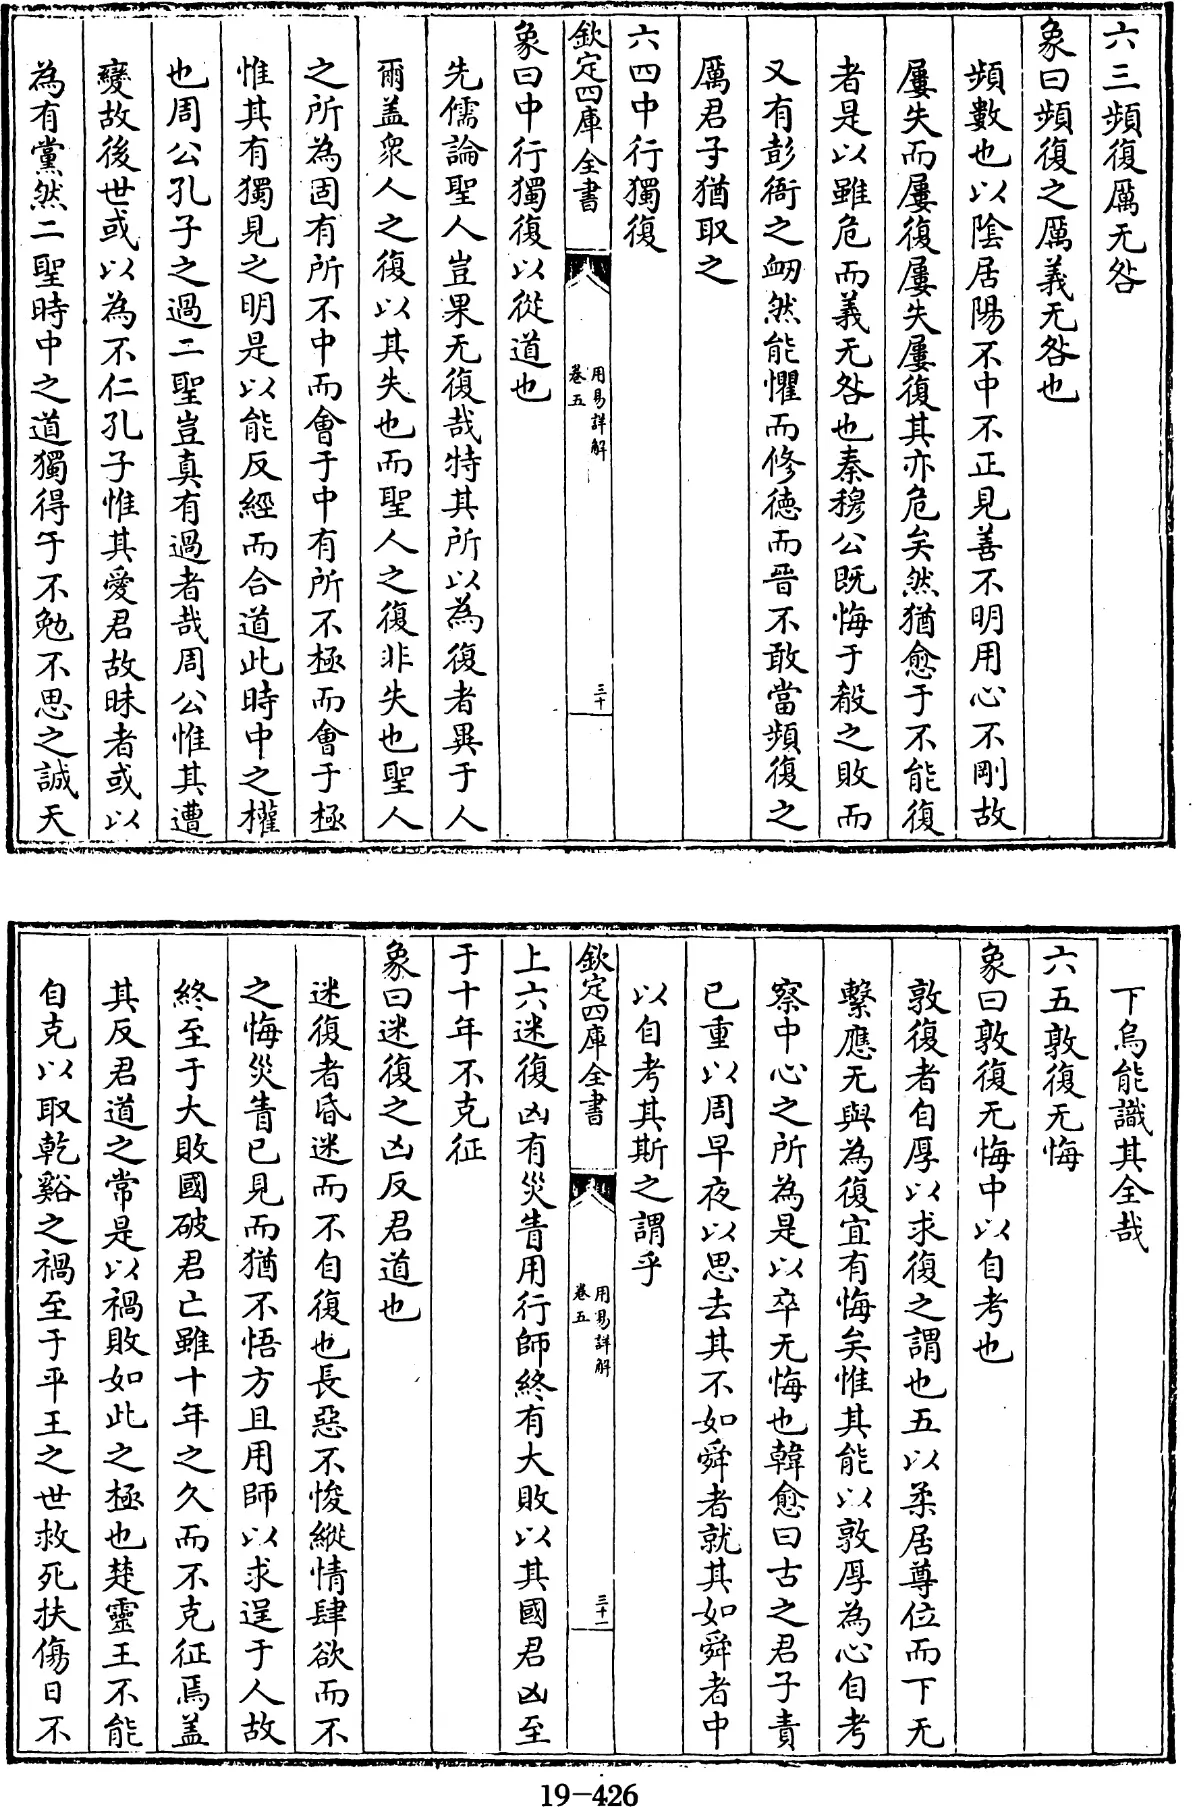 六三頻復厲无咎
象曰頻復之厲義无咎也
頻數也以陰居陽不中不正見善不明用心不剛故
屢失而屢復屢失屢復其亦危矣然猶愈于不能復
者是以雖危而義无咎也秦穆公既悔于殽之敗而
又有彭衙之衂然能懼而修德而晉不敢當頻復之
厲君子猶取之
六四中行獨復
欽定四庫全書
用易詳解
卷五
三十
象曰中行獨復以從道也
先儒論聖人豈果无復哉特其所以為復者異于人
爾盖衆人之復以其失也而聖人之復非失也聖人
之所為固有所不中而會于中有所不極而會于極
惟其有獨見之明是以能反經而合道此時中之權
也周公孔子之過二聖豈真有過者哉周公惟其遭
變故後世或以為不仁孔子惟其愛君故昧者或以
為有黨然二聖時中之道獨得于不勉不思之誠天
下烏能識其全哉
六五敦復无悔
象曰敦復无悔中以自考也
敦復者自厚以求復之謂也五以柔居尊位而下无
繫應无與為復宜有悔矣惟其能以敦厚為心自考
察中心之所為是以卒无悔也韓愈曰古之君子責
已重以周早夜以思去其不如舜者就其如舜者中
以自考其斯之謂乎
欽定四庫全書
用易詳解
卷五
三十一
上六迷復凶有災眚用行師終有大敗以其國君凶至
于十年不克征
象曰迷復之凶反君道也
迷復者昏迷而不自復也長惡不悛縱情肆欲而不
之悔災眚已見而猶不悟方且用師以求逞于人故
終至于大敗國破君亡雖十年之久而不克征焉盖
其反君道之常是以禍敗如此之極也楚靈王不能
自克以取乾谿之禍至于平王之世救死扶傷日不
19-426